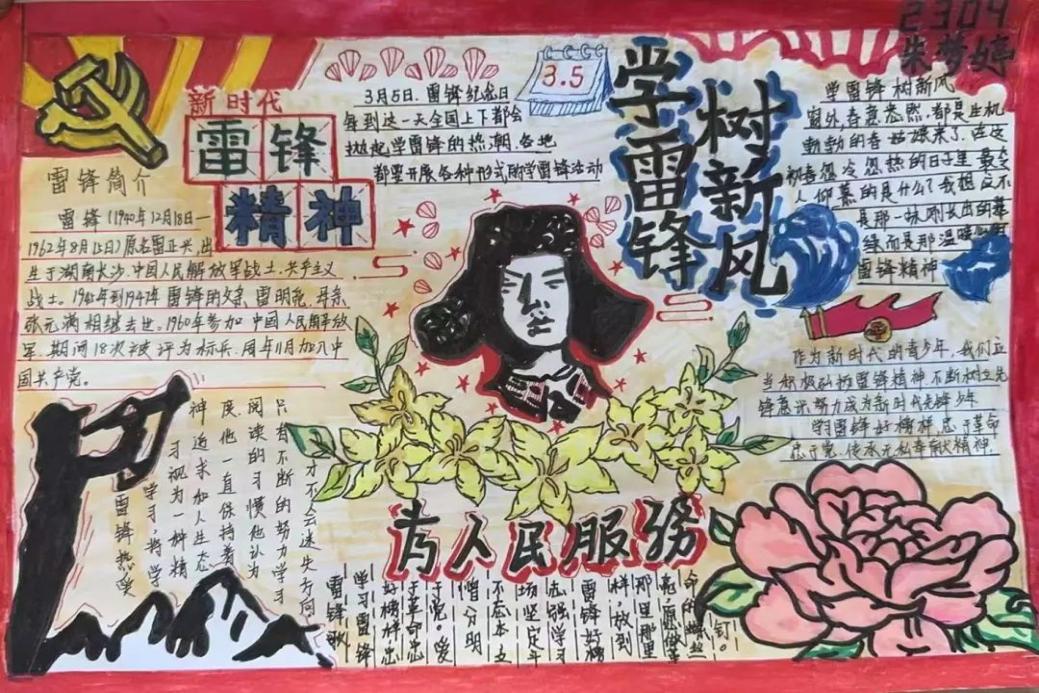 2304
朱梦婷
3.5
新时代
雷锋
精神
3月5日.雷锋纪念日
每到这一天全国上下都会
掀起学雷锋的热潮.各地
都要开展各种形式的学雷锋活动
学雷锋
树新风
雷锋简介
雷锋(1940年12月18日—
1962年8月15日)原名雷正兴,出
生于湖南长沙.中国人民解放军战士.共产主义
战士.
年到1947年雷锋的父亲,雷明亮,母亲
张元满相继去世.1960年参加中国人民解放
军.期间18次被评为标兵.同年11月加入中
国共产党.
学雷锋 树新风
窗外,春意盎然,都是生机
勃勃的春姑娘来了.在这
初春忽冷忽热的日子里最令
人仰慕的是什么?我想
不
是那一抹刚长出的
绿而是那温暖
雷锋精神
作为新时代的青少年.我们应
当积极弘扬雷锋精神不断树立先
锋意识努力成为新时代先锋少年
学习雷锋好榜样忠于革命
忠于党.传承无私奉献精神.
雷锋热爱
学习,将学
习视为一种精
神追求加人生态
度.他一直保持着
阅读的习惯他认为
只有不断的努力学习
才不会迷失方向
为人民服务
雷锋歌
学习雷锋
好榜样忠
于革命忠
于党.爱
憎分明
不忘本立
场坚定斗
志强学习
雷锋好榜
样,放到
那里那里
亮.愿做革
命的螺丝
钉。